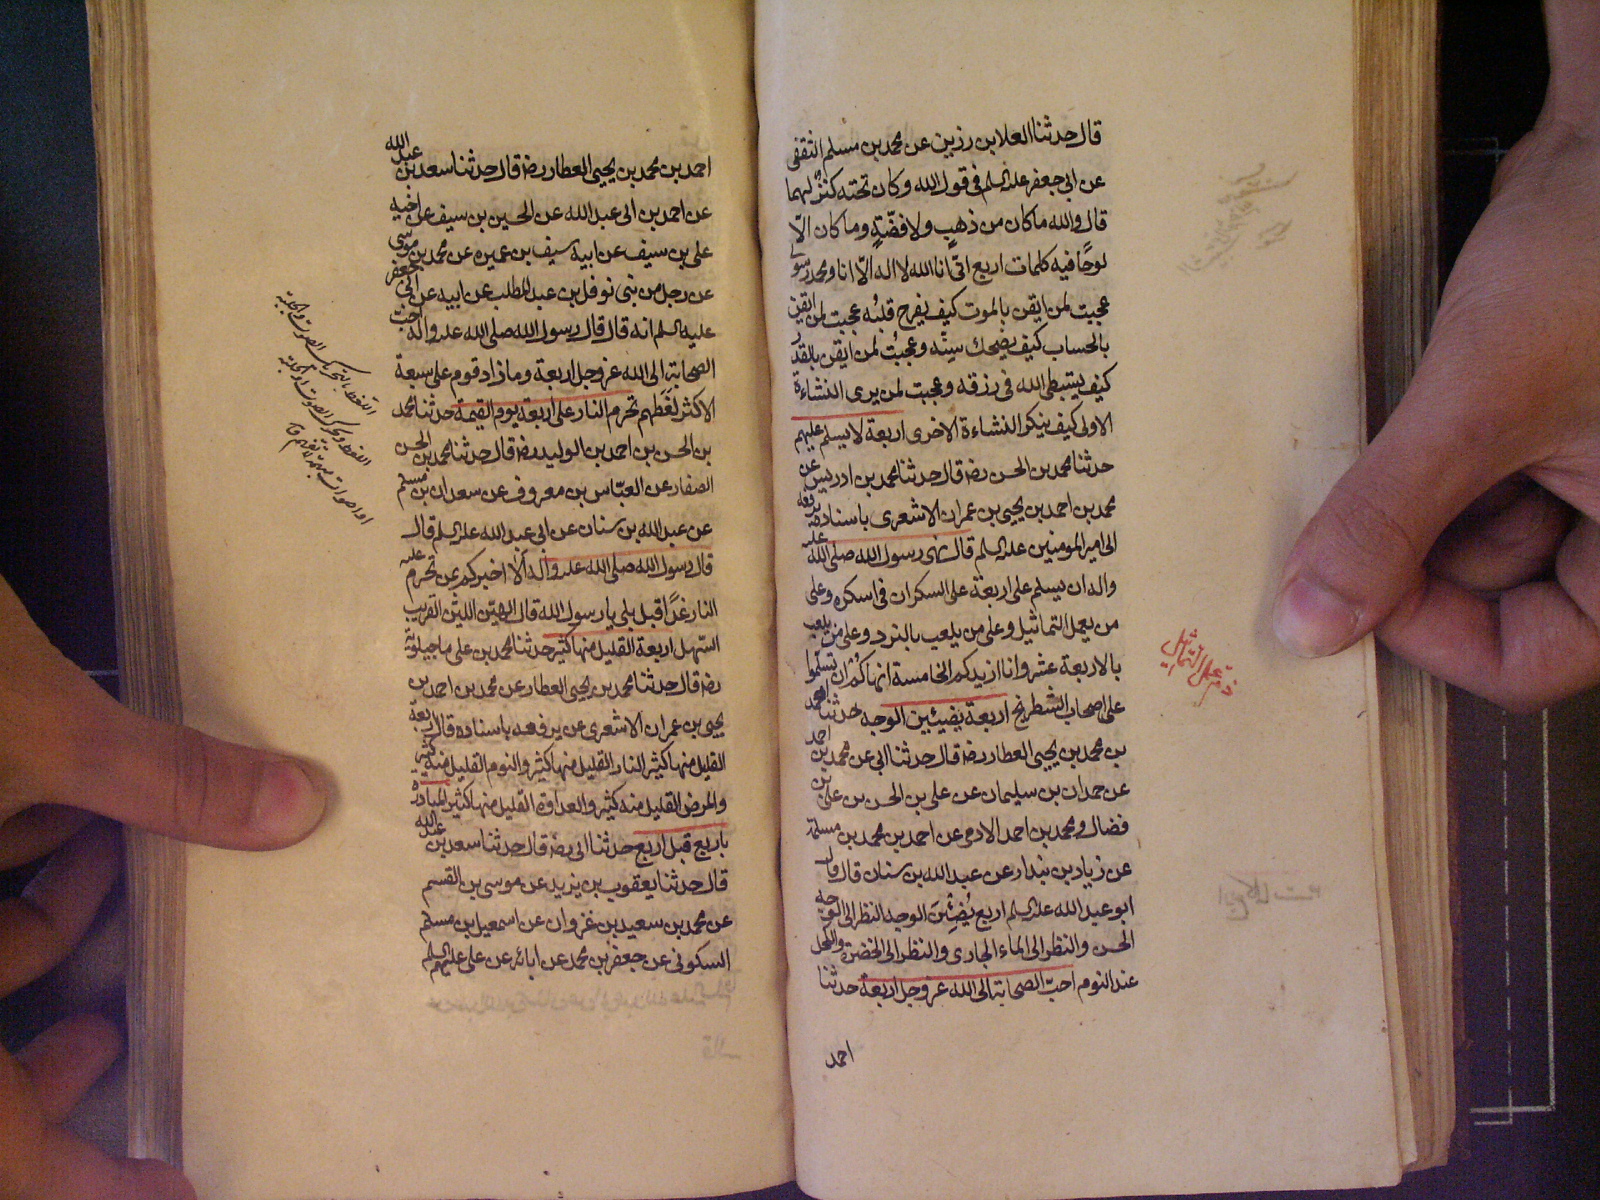 قال حدثنا العلا بن رزين عن محمد بن مسلم الثقفى
عن ابى جعفر عليه السلم فى قول الله وكان تحته كنز لهما
قال والله ما كان من ذهب ولا فضّة وما كان الّا
لوحًا فيه كلمات اربع انّى انا الله لا اله الّا انا ومحمد رسولى
عجبت لمن ايقن بالموت كيف يفرح قلبُه عجبت لمن ايقن
بالحساب كيف يضحك سنّه وعجبتُ لمن ايقن بالقدر
كيف يستبطى الله فى رزقه وعجبت لمن يرى النشاءة
الاولى كيف ينكر النشاءة الاخرى اربعة لا يسلم عليهم
حدثنا محمد بن الحسن رضه قال حدثنا محمد بن ادريس عن
محمد بن احمد بن يحيى بن عمران الاشعرى باسناده يرفعه
الى امير المومنين عليه السلم قال نهى رسول الله صلى الله عليه
واله ان يسلم على اربعة على السكران فى اسكره وعلى
من يعمل التماثيل وعلى من يلعب بالنرد وعلى من يلعب
بالاربعة عشر وانا ازيدكم الخامسة انهاكم ان تسلموا
على اصحاب الشطرنج اربعة يضيئين الوجه حدثنا احمد
بن محمد بن يحيى العطار رضه قال حدثنا ابى عن محمد بن احمد
عن حمدان بن سليمان عن على بن الحسن بن على بن
فضال ومحمد بن احمد الادمى عن احمد بن محمد بن مسلمة
عن زياد بن بندار عن عبد الله بن سنان قال قال
ابو عبد الله عليه السلم اربع يُضِئنَ الوجه النظر الى الوجه
الحسن والنظر الى الماء الجارى والنظر الى الخضرة والكحل
عند النوم احبّ الصحابة الى الله عز وجل اربعة حدثنا
احمد
عمل التماثيل
احمد بن محمد بن يحيى العطار رضه قال حدثنا سعد بن عبد الله
عن احمد بن ابى عبد الله عن الحسين بن سيف عن اخيه
على بن سيف عن ابيه سيف بن عميره عن محمد بن موسى
عن رجل من بنى نوفل بن عبد المطلب عن ابيه عن ابى جعفر
عليه السلم انه قال قال رسول الله صلى الله عليه واله احبّ
الصحابة الى الله عز وجل اربعة وما زاد قوم على سبعة
الا كثر لَغَطهم تحرم النار على اربعة يوم القيمة حدثنا محمد
بن الحسن بن احمد بن الوليد رضه قال حدثنا محمد بن الحسن
الصفار عن العبّاس بن معروف عن سعدان بن مسلم
عن عبد الله بن سنان عن ابى عبد الله عليه السلم قال
قال رسول الله صلى الله عليه واله الا اخبركم عن تحرم عليه
النار غدًا قيل بلى يا رسول الله قال الهيّن الليّن القريب
السّهل اربعة القليل منها كثير حدثنا محمد بن على ماجيلويه
رضه قال حدثنا محمد بن يحيى العطار عن محمد بن احمد بن
يحيى بن عمران الاشعرى عن يرفعه باسناده قال اربعة
القليل منها كثير النار القليل منها كثير والنوم القليل منه كثير
والمرض القليل منه كثير والعداوة القليل منها كثير المبادرة
باربع قبل اربع حدثنا ابى رضه قال حدثنا سعد بن عبد الله
قال حدثنا يعقوب بن يزيد عن موسى بن القسم
عن محمد بن سعيد بن غزوان عن اسمعيل بن مسلم
السكونى عن جعفر بن محمد عن ابائه عن على عليهم السلم